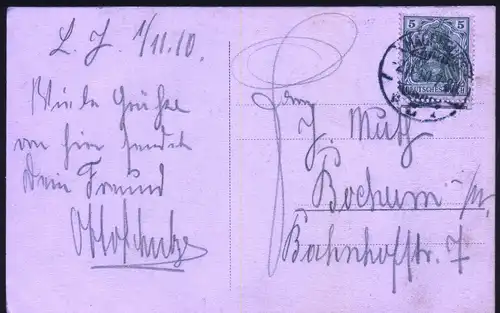 L. J. 1/11.10.
Viele Grüße
von hier sendet
Dein Freund
Otto Schulze
5 5
DEUTSCHES REICH
Herrn
J. Muth
Bochum i/W.
Bahnhofstr. 7